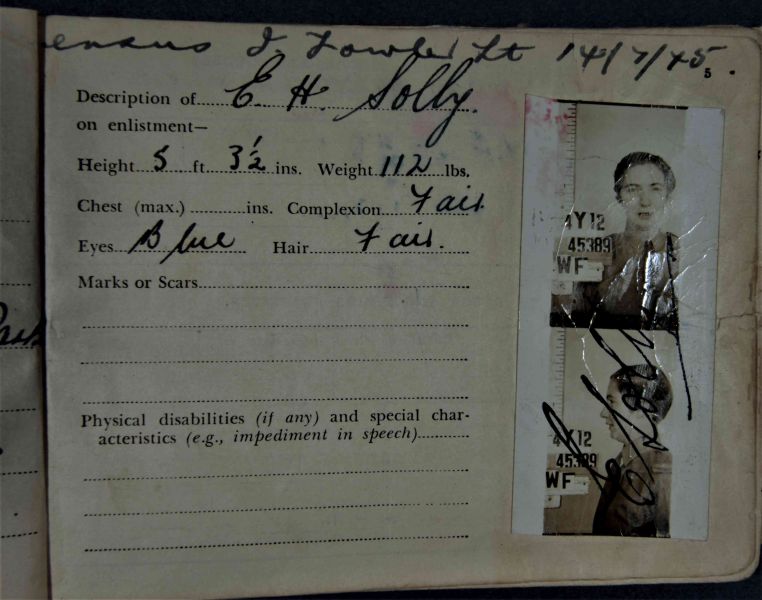 J. Fowler Lt 14/7/45.
Description of E. H. Solly.
on enlistment—
Height 5 ft. 3½ ins. Weight 112 lbs.
Chest (max.) ins. Complexion Fair
Eyes Blue Hair Fair.
Marks or Scars
Physical disabilities (if any) and special char-
acteristics (e.g., impediment in speech)
4Y12
45389
WF
4Y12
45389
WF
E Solly